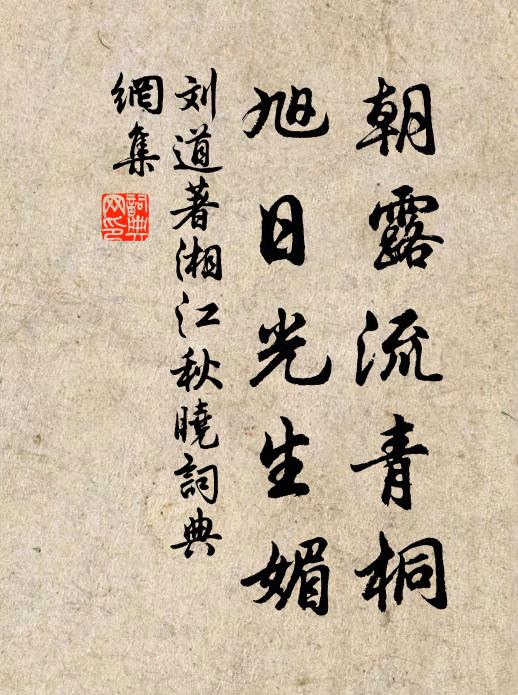 朝露流青桐
旭日光生媚
刘道著湘江秋曉詞典
網集
詞典
网印